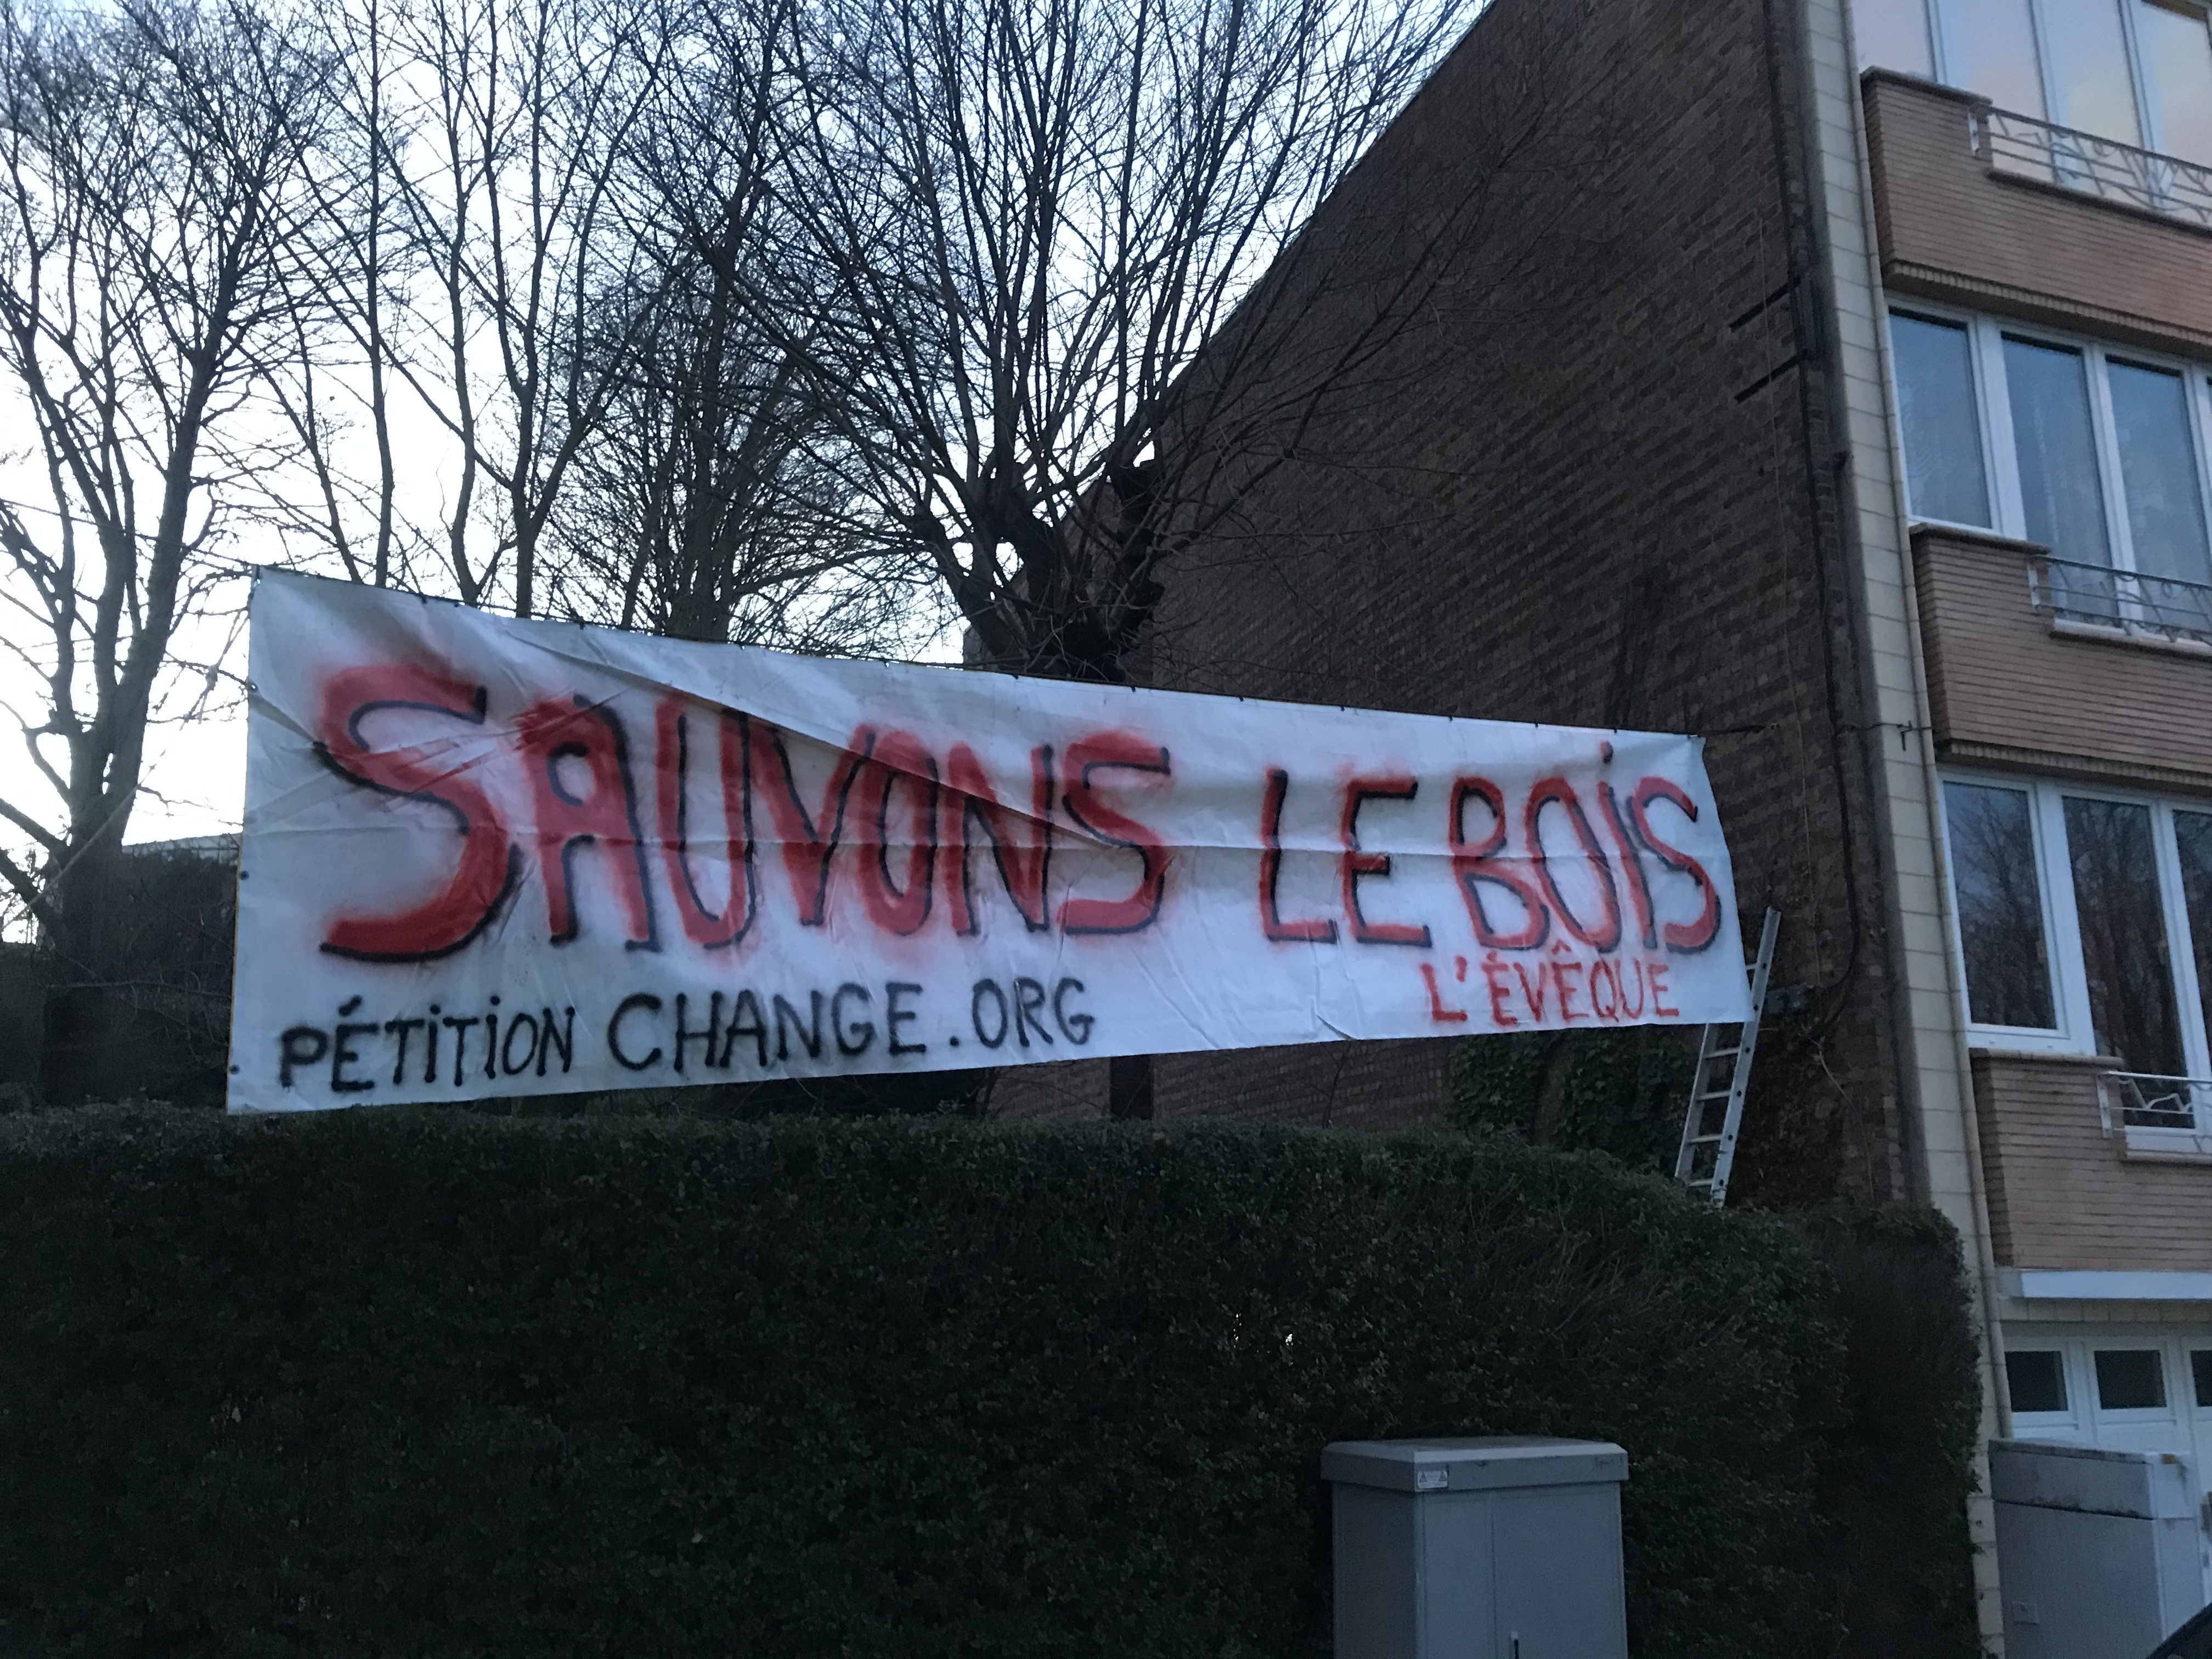 SAUVONS LE BOiS
L'ÉVÊQUE
PÉTiTiON CHANGE.ORG